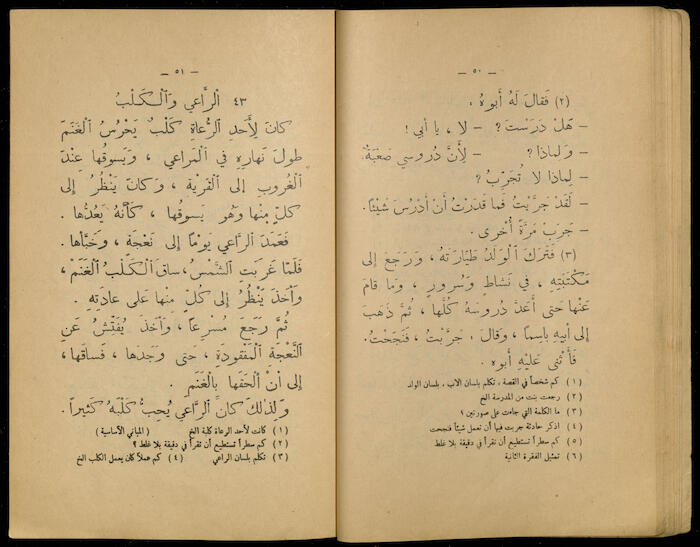 — ٥٠ —
(٢) فَقالَ لَهُ أَبوهُ ،
— هَلْ دَرَسْتَ ؟ — لا ، يا أَبي !
— وَلماذا ؟ — لِأَنَّ دُروسي صَعْبَةٌ.
— لِماذا لا تُجَرِّبُ ؟
— لَقَدْ جَرَّبْتُ فما قَدَرْتُ أَنْ أَدْرُسَ شَيْئاً.
— جَرِّبْ مَرَّةً أُخْرى .
(٣) فَتَرَكَ الْوَلَدُ طَيَّارَتَهُ ، وَرَجَعَ إِلى
مَكْتَبَتِهِ ، في نَشاطٍ وَسُرورٍ ، وَما قامَ
عَنْها حَتى أَعَدَّ دُروسَهُ كُلَّها ، ثُمَّ ذَهَبَ
إِلى أَبيهِ باسِماً ، وَقالَ ، جَرَّبْتُ ، فَنَجَحْتُ.
فَأَثْنى عَلَيْهِ أَبوهُ .
(١) كم شخصاً في القصة ، تكلم بلسان الاب ، بلسان الولد
(٢) رجعت بنت من المدرسة الخ
(٣) ما الكلمة التي جاءت على صورتين ؟
(٤) اذكر حادثة جربت فيها أن تعمل شيئاً فنجحت
(٥) كم سطراً تستطيع أن تقرأ في دقيقة بلا غلط
(٦) تمثيل الفقرة الثانية
— ٥١ —
٤٣ الرَّاعي وَالْكَلْبُ
كانَ لِأَحَدِ الرُّعاةِ كَلْبٌ يَحْرُسُ الْغَنَمَ
طولَ نَهارِهِ في الْمَراعي ، وَيَسوقُها عِنْدَ
الْغُروبِ إِلى الْقَرْيَةِ ، وَكانَ يَنْظُرُ إِلى
كلٍّ مِنْها وَهُوَ يَسوقُها ، كَأَنَّهُ يَعُدُّها .
فَعَمَدَ الرَّاعي يَوْماً إِلى نَعْجَةٍ ، وَخَبَّأَها.
فَلَمَّا غَرَبَتِ الشَّمْسُ، ساقَ الْكَلْبُ الْغَنَمَ،
وَأَخَذَ يَنْظُرُ إِلى كُلٍّ مِنْها عَلى عادَتِهِ .
ثُمَّ رَجَعَ مُسْرِعاً ، وَأَخَذَ يُفَتِّشُ عَنِ
النَّعْجَةِ الْمَفْقودَةِ ، حَتى وَجَدَها ، فَساقَها،
إِلى أَنْ أَلْحَقَها بِالْغَنَمِ .
وَلِذلِكَ كانَ الرَّاعي يُحِبُّ كَلْبَهُ كَثيراً.
(١) كانت لأحد الرعاة كلبة الخ (المباني الأساسية)
(٢) كم سطراً تستطيع أن تقرأ في دقيقة بلا غلط ؟
(٣) تكلم بلسان الراعي (٤) كم عملاً كان يعمل الكلب الخ